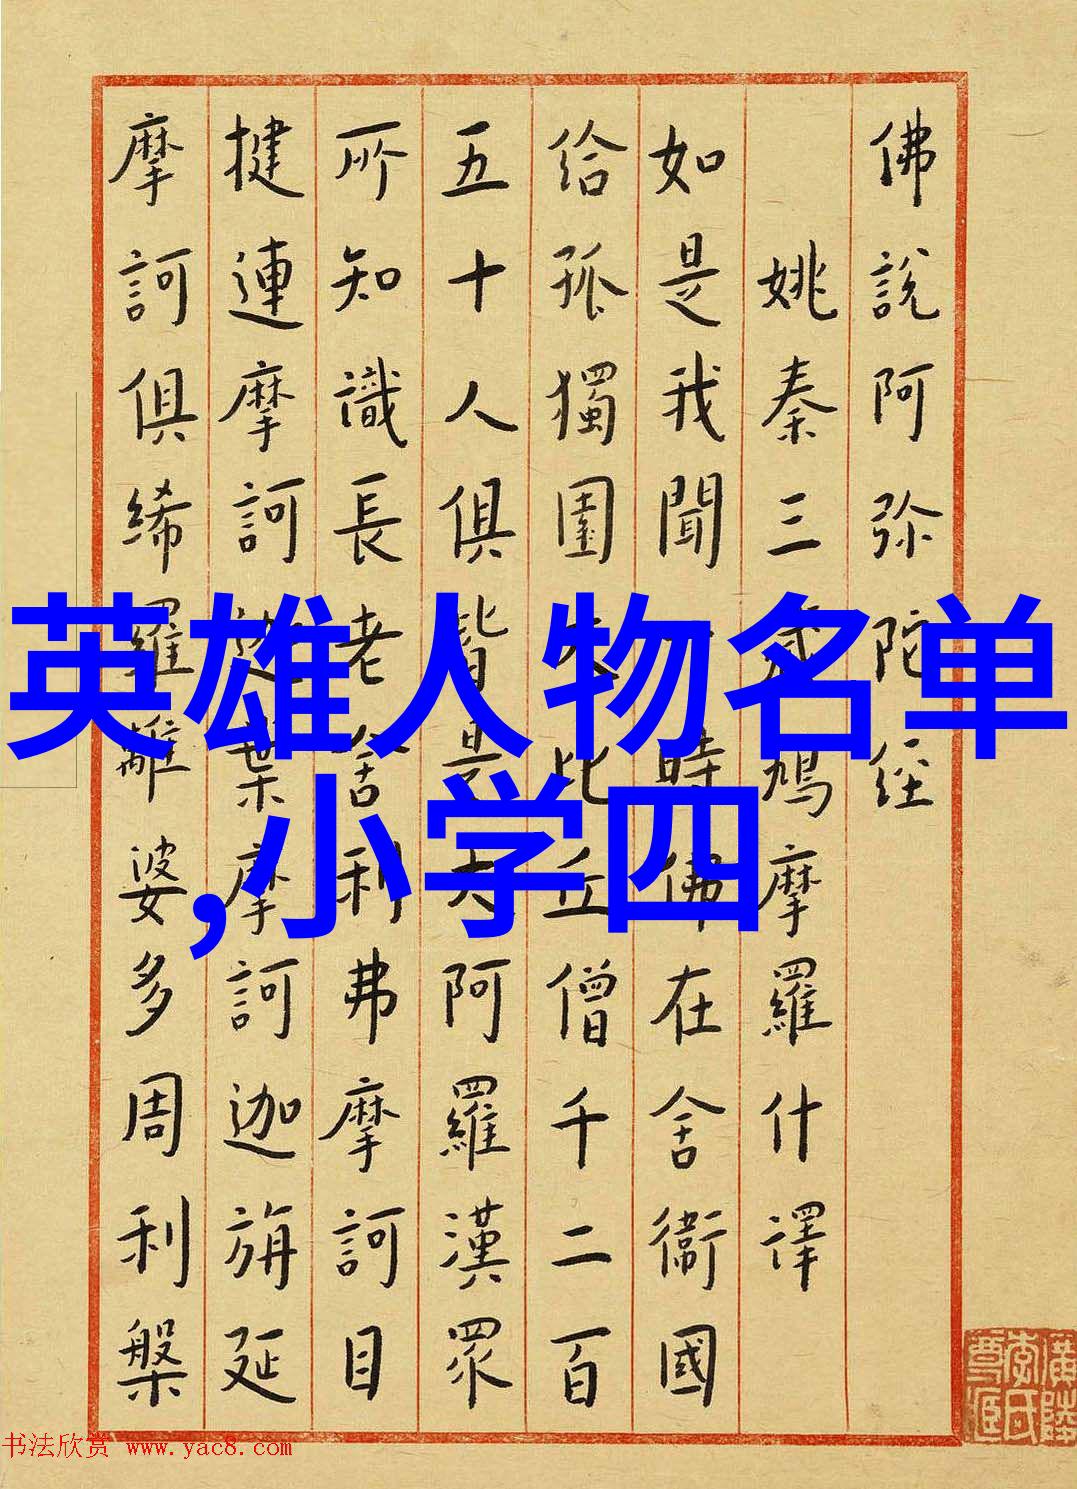 佛說阿弥陀經
姚秦三藏鳩摩羅什譯
如是我聞一時佛在舍衛國
給孤獨園大比丘僧千二百
五十人俱皆是大阿羅漢眾
所知識長老舍利弗摩訶目
揵連摩訶迦葉摩訶迦旃延
摩訶俱絺羅離婆多周利槃
英雄人物名单
,小学四
书法欣赏 www.yac8.com